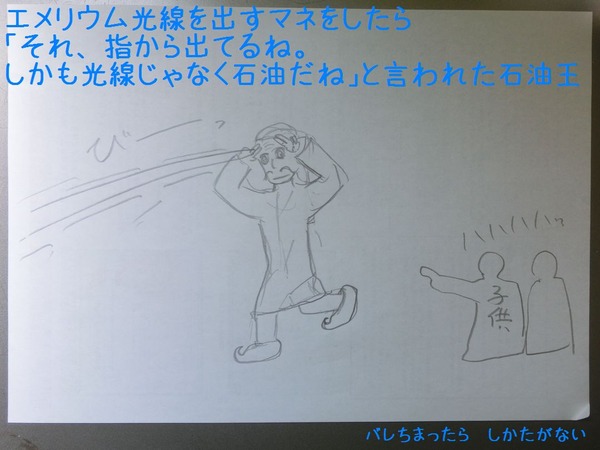 エメリウム光線を出すマネをしたら
「それ、指から出てるね。
しかも光線じゃなく石油だね」と言われた石油王
びーーっ
ハハハハハッ
子供
バレちまったら しかたがない